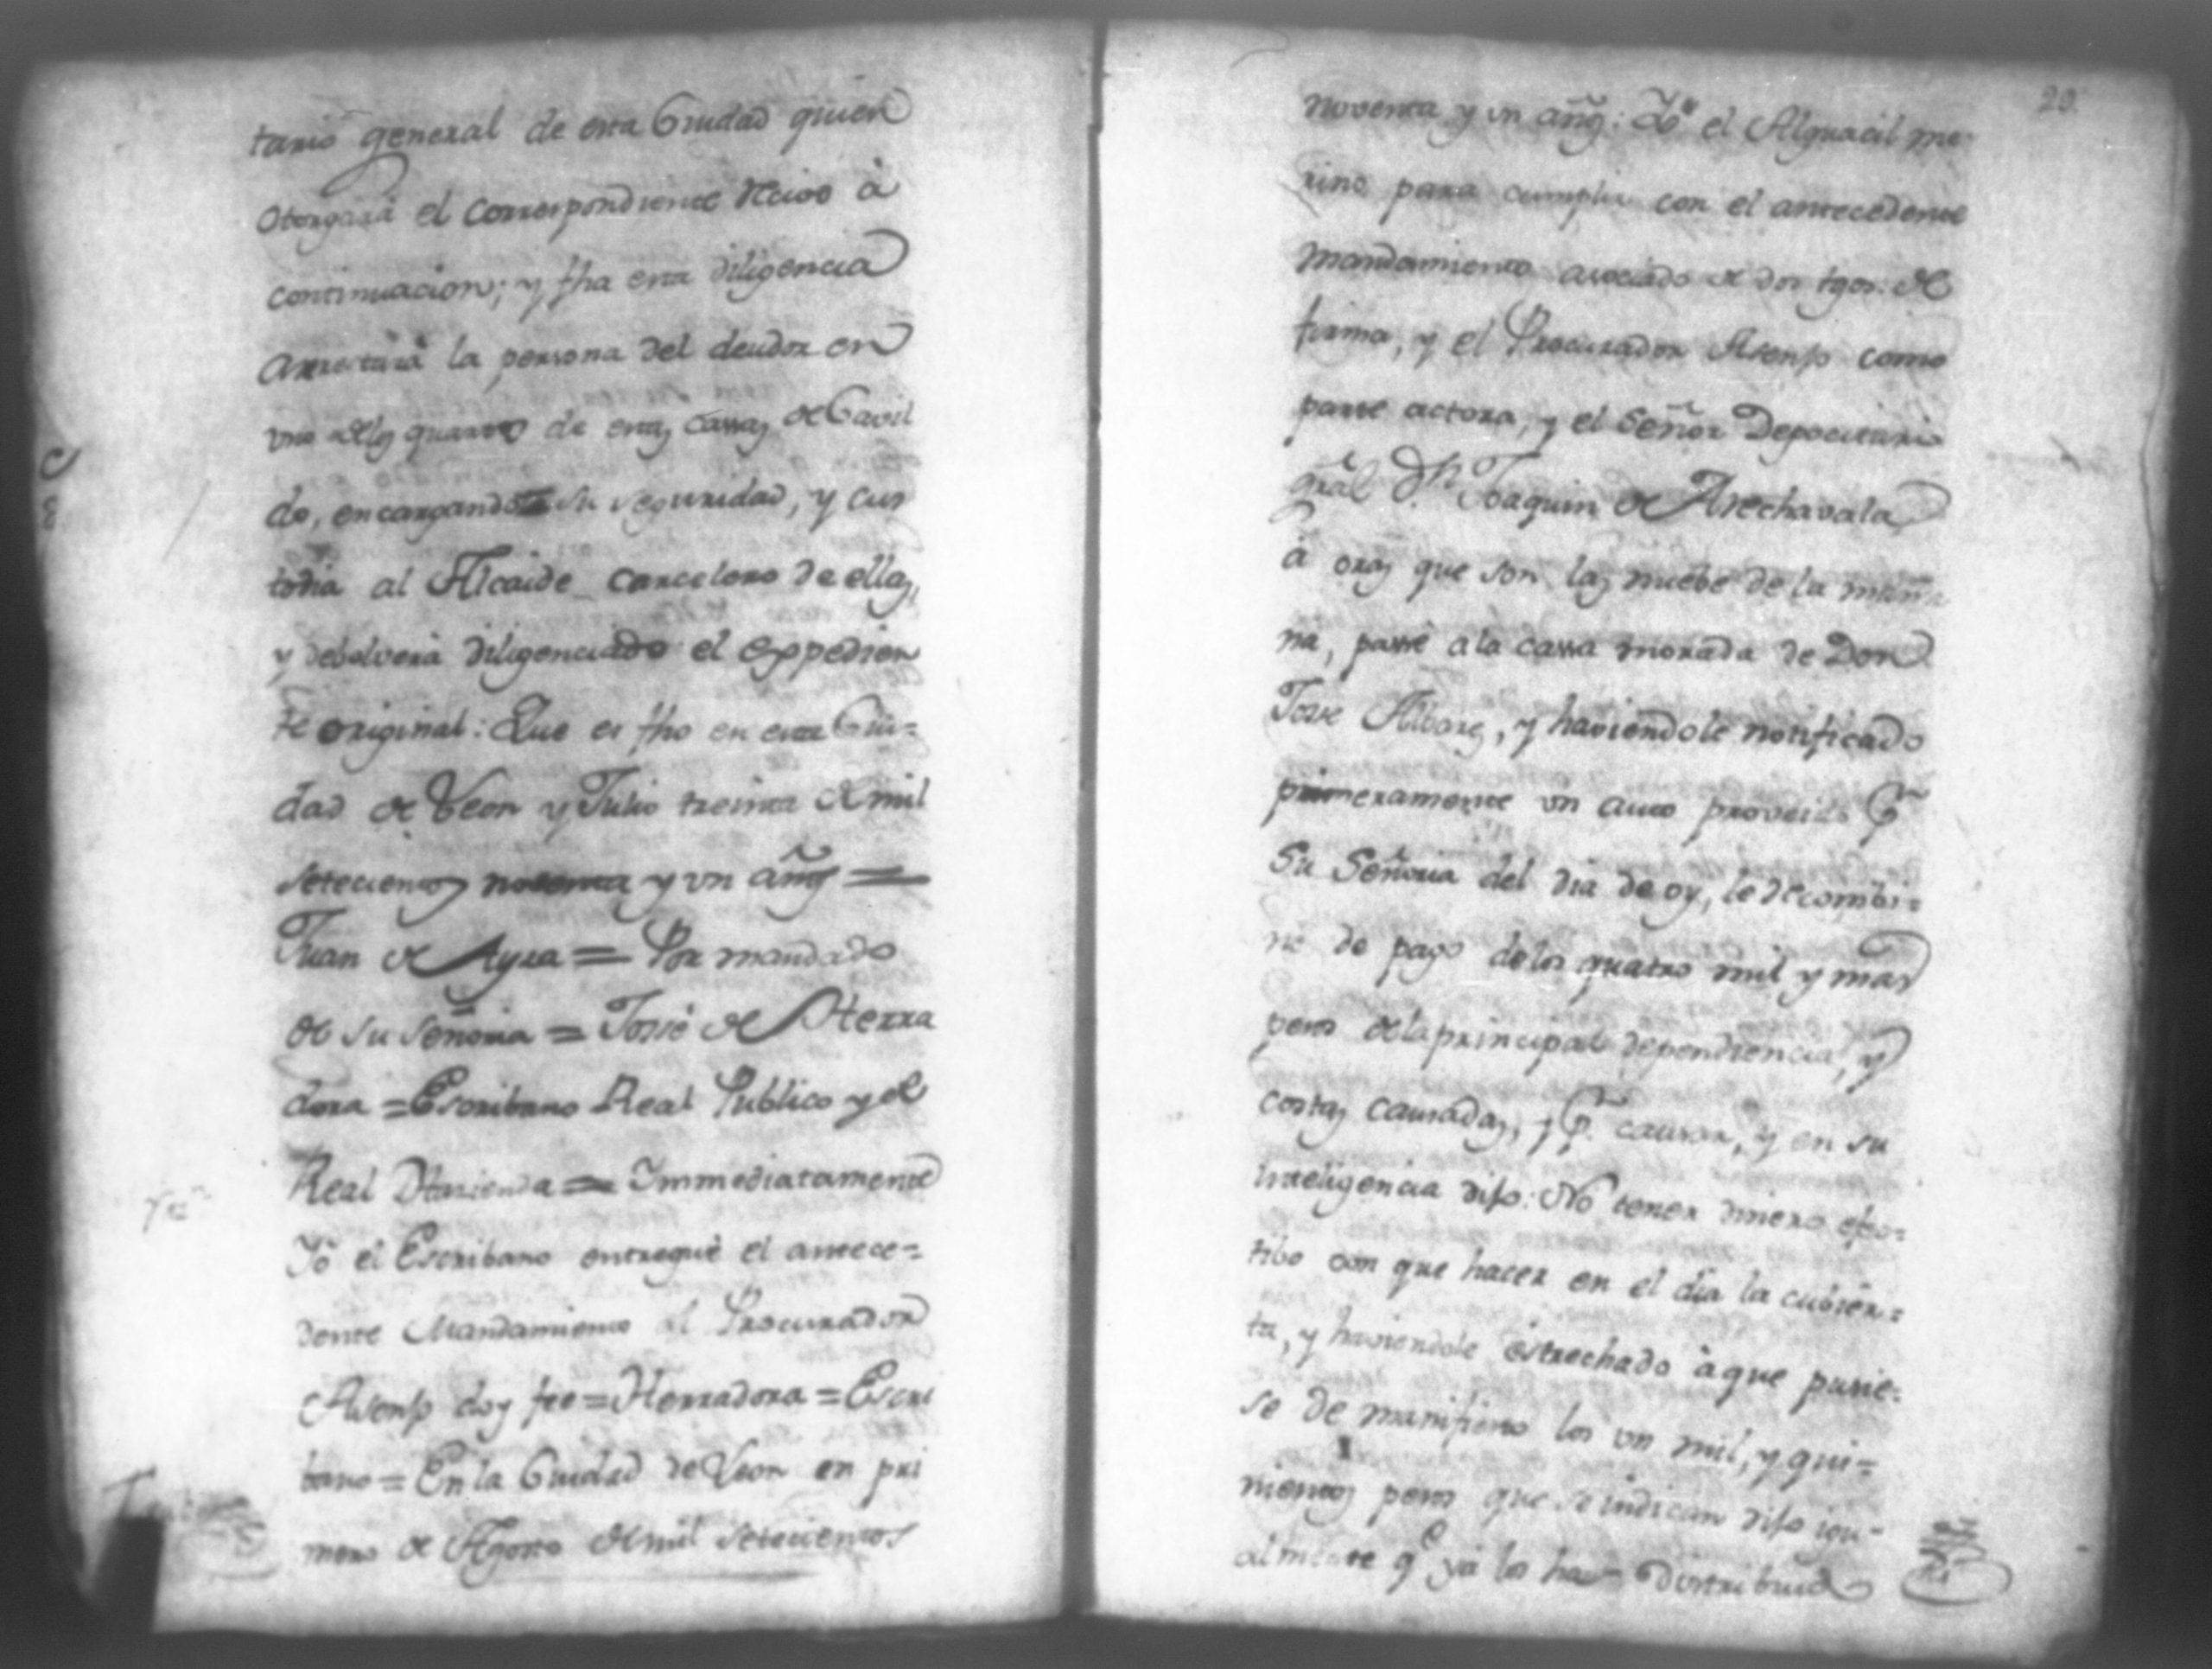 tario general de esta Ciudad quien
otorgará el correspondiente recivo à
continuacion; y fha esta diligencia
arrestarà la persona del deudor en
uno de los quartos de estas cassas de Cavil
do, encargando su seguridad, y cus
todia al Alcaide carcelero de ellas,
y debolverà diligenciado el expedien
te original: Que es fho en esta Ciu=
dad de Leon y Julio treinta de mil
setecientos noventa y un años =
Juan de Ayza = Por mandado
de su señoria = José de Herra
dora = Escribano Real Publico y de
Real Hacienda = Immediatamente
Yo el Escribano entregué el antece=
dente Mandamiento al Procurador
Asenjo doy fee = Herradora = Escri
bano = En la Ciudad de Leon en pri
mero de Agosto de mil setecientos
20
noventa y un años: Yo el Alguacil me-
rino para cumplir con el antecedente
mandamiento asociado de dos tgos. de
firma, y el Procurador Asenjo como
parte actora, y el Señor Depocitario
gral Dn. Joaquin de Arechavala
à oras que son las nuebe de la maña
na, passé a la cassa morada de Don
José Albarez, y haviendole notificado
primeramente un auto proveido pr
Su Señoria del dia de oy, le recombi=
ne de pago de los quatro mil y mas
pesos de la principal dependiencia, y
costas causadas, y pr. causar, y en su
inteligencia dijo: No tener dinero efec=
tibo con que hacer en el dia la cubier=
ta, y haviendole estrechado à que pusie=
se de manifiesto los un mil, y qui=
nientos pesos que se indican dijo igu-
almente qe ya los ha distribuido